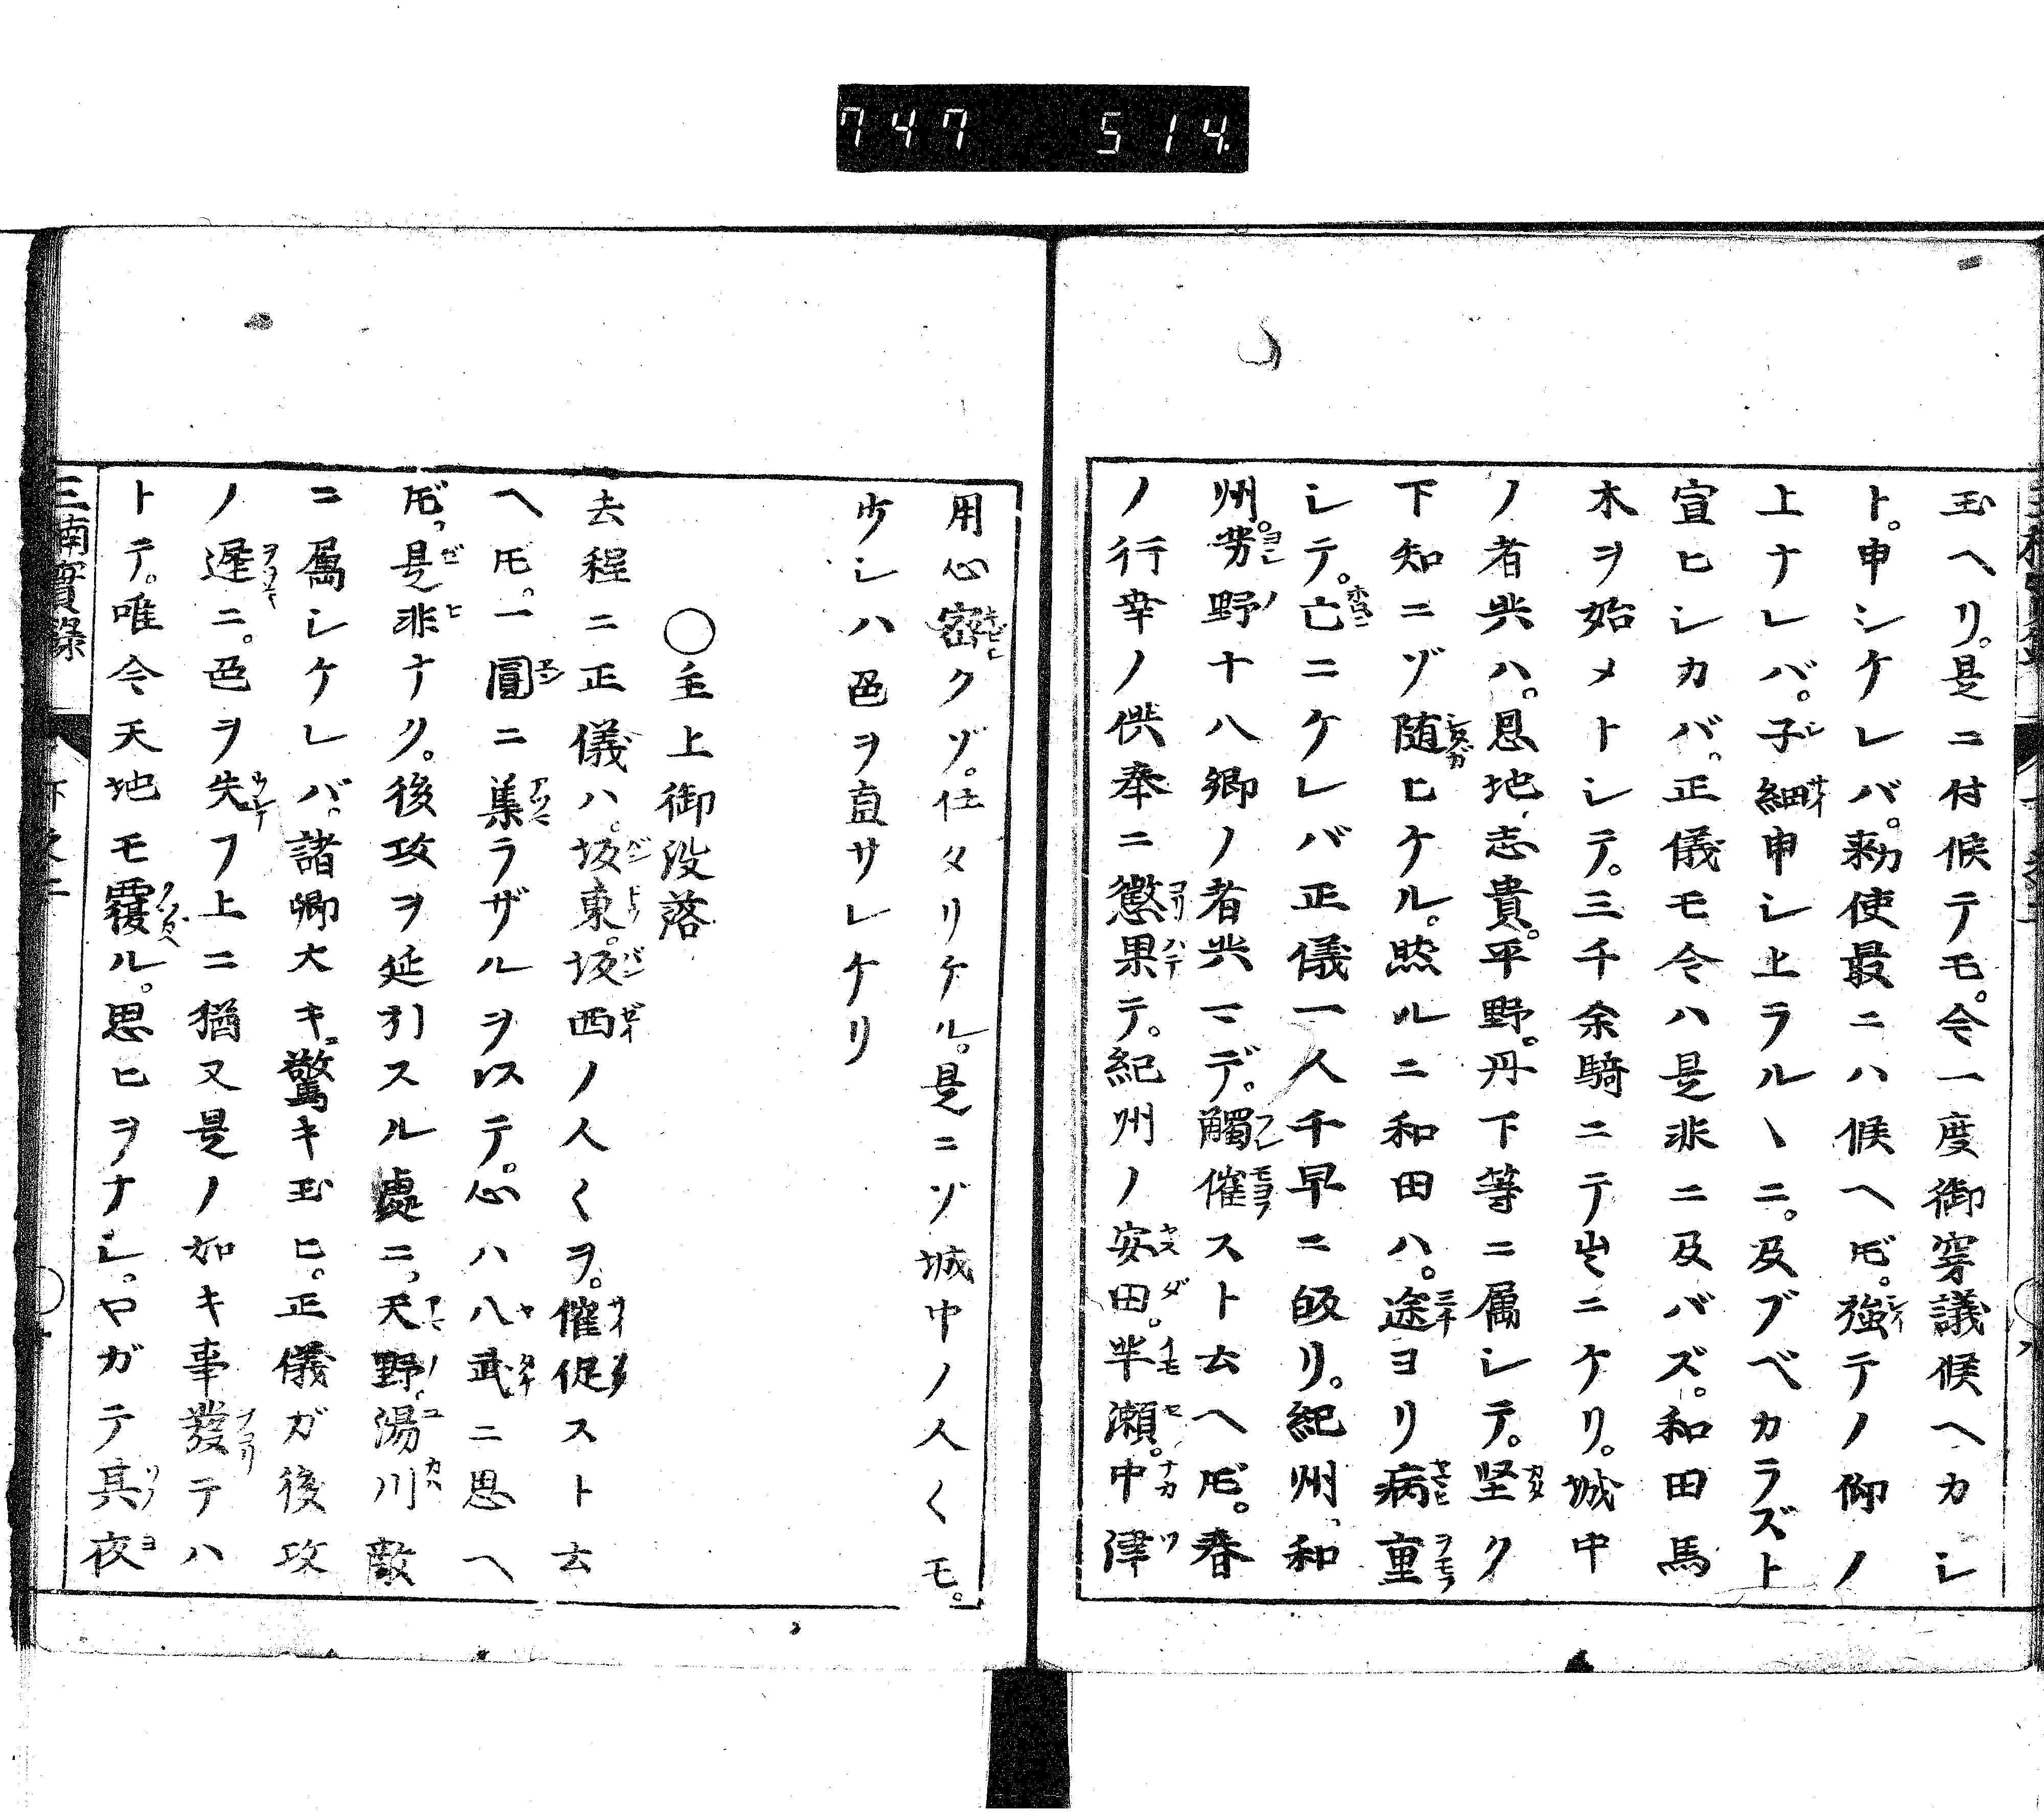 747 514
玉ヘリ。是ニ付候テモ。今一度御穿議候ヘカシ
ト。申シケレバ。勅使最ニハ候ヘ𪜈。強テノ仰ノ
上ナレバ。子細申シ上ラルヽニ。及ブベカラズト
宣ヒシカバ。正儀モ今ハ是非ニ及バズ。和田馬
木ヲ始メトシテ。三千余騎ニテ出ニケリ。城中
ノ者共ハ。恩地、志貴。平野。丹下等ニ属シテ。堅ク
下知ニゾ随ヒケル。然ルニ和田ハ。途ヨリ病重
シテ。亡ニケレバ正儀一人千早ニ皈リ。紀州、和
州。芳野十八郷ノ者共マデ。觸催スト云ヘ𪜈。春
ノ行幸ノ供奉ニ懲果テ。紀州ノ安田。芋瀬。中津
用心密クゾ。仕タリケル。是ニゾ城中ノ人〱モ。
少シハ色ヲ直サレケリ
〇主上御没落
去程ニ正儀ハ。坂東。坂西ノ人〱ヲ。催促スト云
ヘ𪜈。一圓ニ集ラザルヲ以テ。心ハ八武ニ思ヘ
𪜈、是非ナク。後攻ヲ延引スル處ニ、天野、湯川敵
ニ属シケレバ。諸卿大キニ驚キ玉ヒ。正儀ガ後攻
ノ遅ニ。色ヲ失フ上ニ猶又是ノ如キ事發テハ
トテ。唯今天地モ覆ル。思ヒヲナシ。ヤガテ其夜
三楠實錄